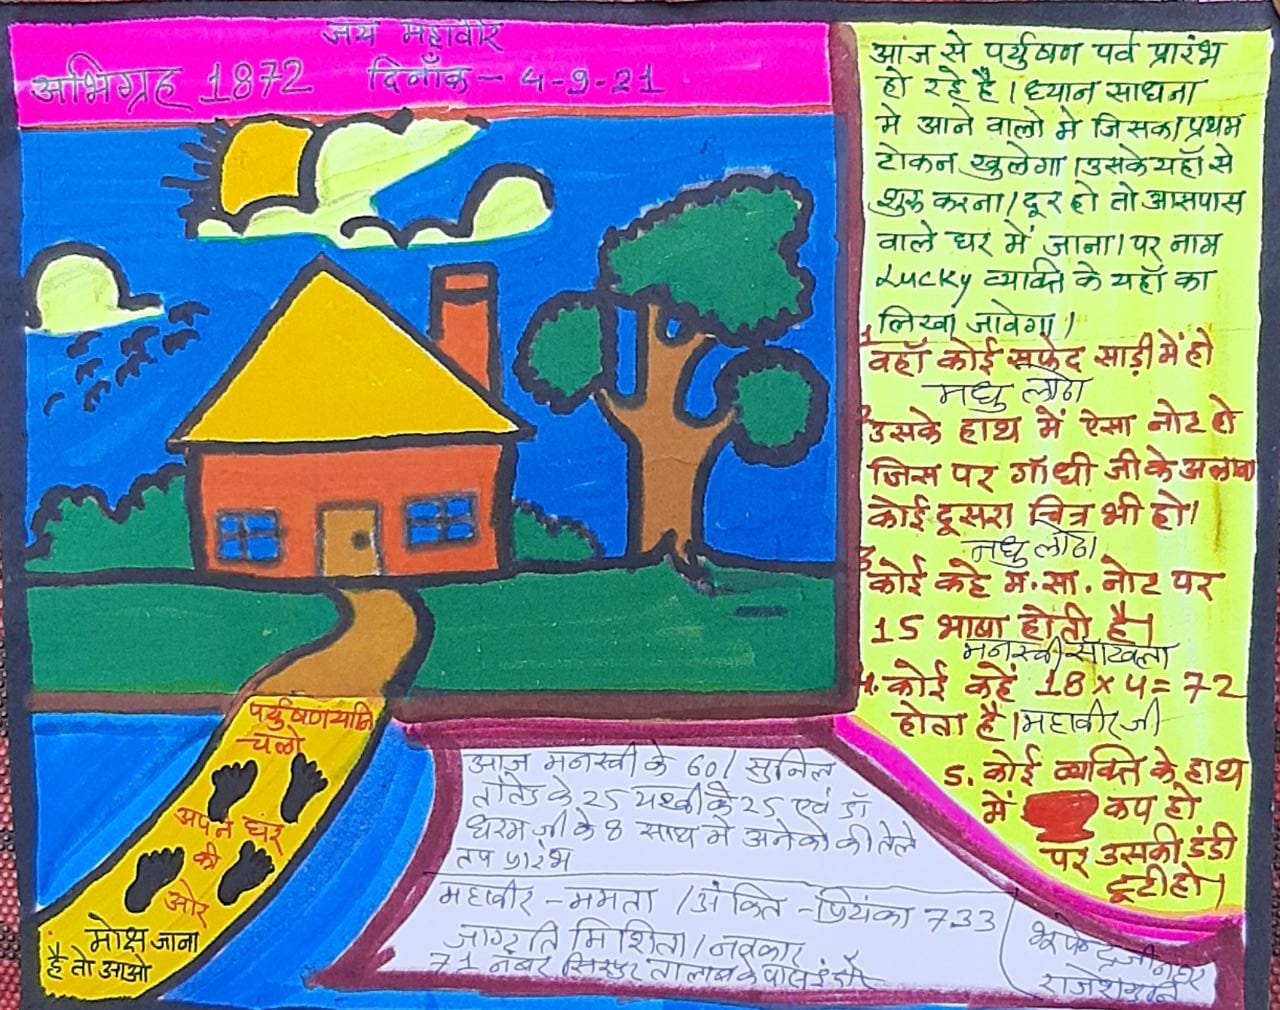 जय महावीर
अभिग्रह 1872 दिनाँक - 4-9-21
आज से पर्युषण पर्व प्रारंभ
हो रहे है। ध्यान साधना
मे आने वालो मे जिसका प्रथम
टोकन खुलेगा। उसके यहाँ से
शुरू करना। दूर हो तो आसपास
वाले घर में जाना। पर नाम
Lucky व्यक्ति के यहाँ का
लिखा जावेगा।
1 वहाँ कोई सफेद साड़ी में हो
मधु लोढा
2 उसके हाथ में ऐसा नोट हो
जिस पर गाँधी जी के अलावा
कोई दूसरा चित्र भी हो।
मधु लोढा
3 कोई कहे म.सा. नोट पर
15 भाषा होती है।
मनस्वी सांखला
4. कोई कहें 18 x 4 = 72
होता है। महावीर जी
5. कोई व्यक्ति के हाथ
में कप हो
पर उसकी डंडी
टूटी हो।
पर्युषण यानि
चलो
अपने घर
की
ओर
मोक्ष जाना
है तो आओ
आज मनस्वी के 60/ सुनिल
के 25 यश्वी के 25 एवं डॉ
धरम जी के 8 साथ मे अनेको की तेले
तप प्रारंभ
महावीर - ममता / अंकित - प्रियंका 733
जागृति मिशिता / नवकार
71 नंबर तालाब के पास इंदौर